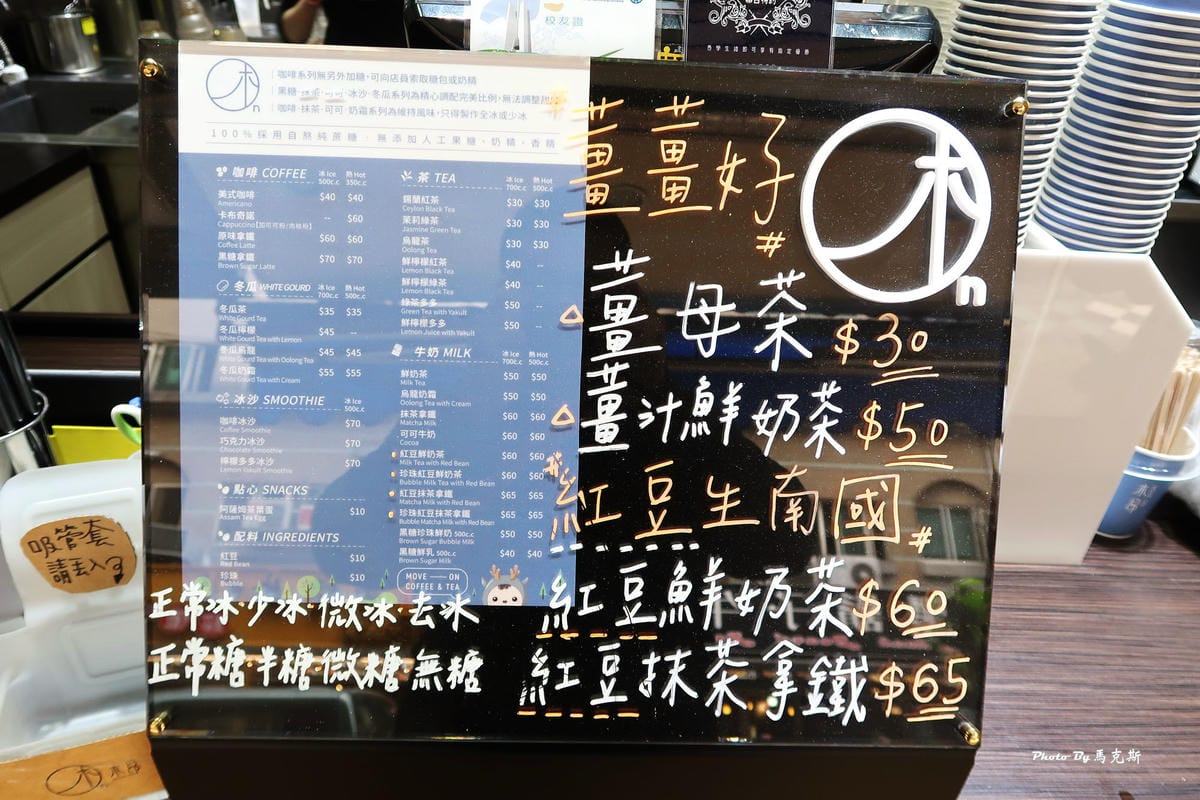 校友證
n
咖啡系列無另外加糖,可向店員索取糖包或奶精
冰沙·冬瓜系列為精心調配完美比例,無法調整甜
咖啡·抹茶·可可·奶霜系列為維持風味,只得製作全冰或少冰
100%採用自熬純蔗糖·無添加人工果糖、奶精、香精
咖啡 COFFEE 冰 Ice 500c.c 熱 Hot 350c.c
美式咖啡 $40 $40
Americano
卡布奇諾 -- $60
Cappuccino【加可可粉/肉桂粉】
原味拿鐵 $60 $60
Coffee Latte
黑糖拿鐵 $70 $70
Brown Sugar Latte
冬瓜 WHITE GOURD 冰 Ice 700c.c 熱 Hot 500c.c
冬瓜茶 $35 $35
White Gourd Tea
冬瓜檸檬 $45 --
White Gourd Tea with Lemon
冬瓜烏龍 $45 $45
White Gourd Tea with Oolong Tea
冬瓜奶霜 $55 $55
White Gourd Tea with Cream
冰沙 SMOOTHIE 冰 Ice 500c.c
咖啡冰沙 $70
Coffee Smoothie
巧克力冰沙 $70
Chocolate Smoothie
檸檬多多冰沙 $70
Lemon Yakult Smoothie
點心 SNACKS
阿薩姆茶葉蛋 $10
Assam Tea Egg
配料 INGREDIENTS
紅豆 $10
Red Bean
珍珠 $10
Bubble
茶 TEA 冰 Ice 700c.c 熱 Hot 500c.c
錫蘭紅茶 $30 $30
Ceylon Black Tea
茉莉綠茶 $30 $30
Jasmine Green Tea
烏龍茶 $30 $30
Oolong Tea
鮮檸檬紅茶 $40 --
Lemon Black Tea
鮮檸檬綠茶 $40 --
Lemon Black Tea
綠茶多多 $50 --
Green Tea with Yakult
鮮檸檬多多 $50 --
Lemon Juice with Yakult
牛奶 MILK 冰 Ice 700c.c 熱 Hot 500c.c
鮮奶茶 $50 $50
Milk Tea
烏龍奶霜 $50 $50
Oolong Tea with Cream
抹茶拿鐵 $60 $60
Matcha Milk
可可牛奶 $60 $60
Cocoa
紅豆鮮奶茶 $60 $60
Milk Tea with Red Bean
珍珠紅豆鮮奶茶 $60 $60
Bubble Milk Tea with Red Bean
紅豆抹茶拿鐵 $65 $65
Matcha Milk with Red Bean
珍珠紅豆抹茶拿鐵 $65 $65
Bubble Matcha Milk with Red Bean
黑糖珍珠鮮奶 500c.c $50 $50
Brown Sugar Bubble Milk
黑糖鮮乳 500c.c $40 $40
Brown Sugar Milk
MOVE — ON
COFFEE & TEA
正常冰·少冰·微冰·去冰
正常糖·半糖·微糖·無糖
#薑薑好#
n
薑母茶 $30
薑汁鮮奶茶 $50
#紅豆生南國#
紅豆鮮奶茶 $60
紅豆抹茶拿鐵 $65
吸管套
請丟入
Photo By 馬克斯